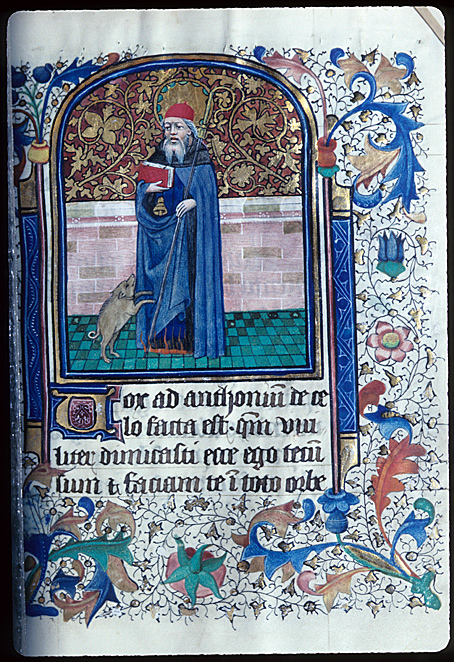 Vox ad anthoniū de ce
lo facta est. qm̄ viri
liter dimicasti ecce ego tecū
sum ⁊ faciam te ī toto orbe